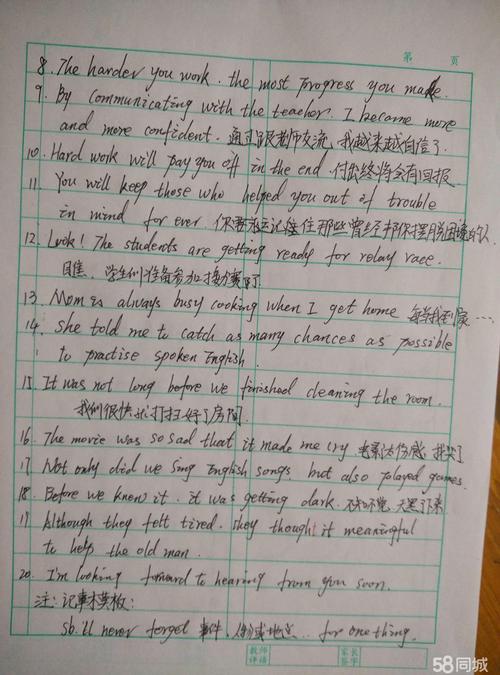 第 页
8. The harder you work. the most progress you make.
9. By communicating with the teacher. I became more
and more confident. 通过跟老师交流, 我越来越自信了.
10. Hard work will pay you off in the end. 付出终将会有回报.
11. You will keep those who helped you out of trouble
in mind for ever. 你要永远记住那些曾经帮你摆脱困境的人
12. Look! The students are getting ready for relay race.
瞧. 学生们准备参加接力赛了.
13. Mom is always busy cooking when I get home 每当我到家…
14. She told me to catch as many chances as possible
to practise spoken English.
15. It was not long before we finished cleaning the room.
我们很快就打扫好了房间.
16. The movie was so sad that it made me cry 电影太伤感, 我哭了
17. Not only did we sing English songs, but also played games.
18. Before we knew it. it was getting dark. 不知不觉, 天黑下来
19. Although they felt tired. they thought it meaningful
to help the old man.
20. I'm looking forward to hearing from you soon.
注: 记事末模板:
sb.'ll never forget 事件, 人物或地点… for one thing.
教师评语 家长签字
58同城